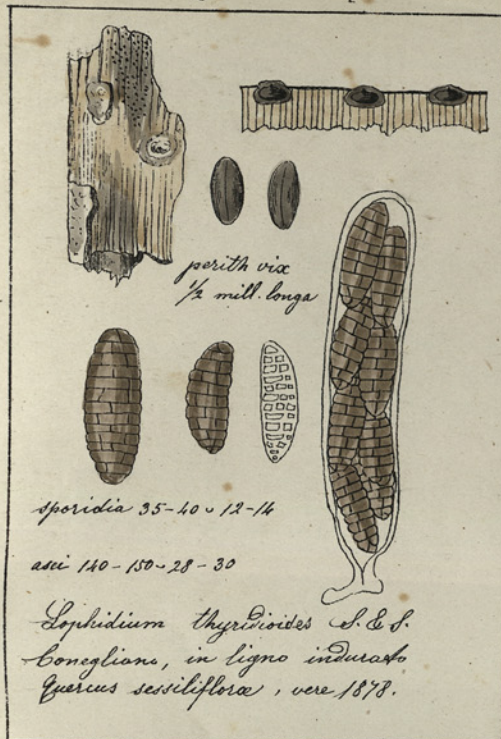 perith vix
1/2 mill. longa
sporidia 35-40 ᴗ 12-14
asci 140-150 ᴗ 28-30
Lophidium thyridioides S. & S.
Conegliano, in ligno indurato
Quercus sessilifloræ, vere 1878.